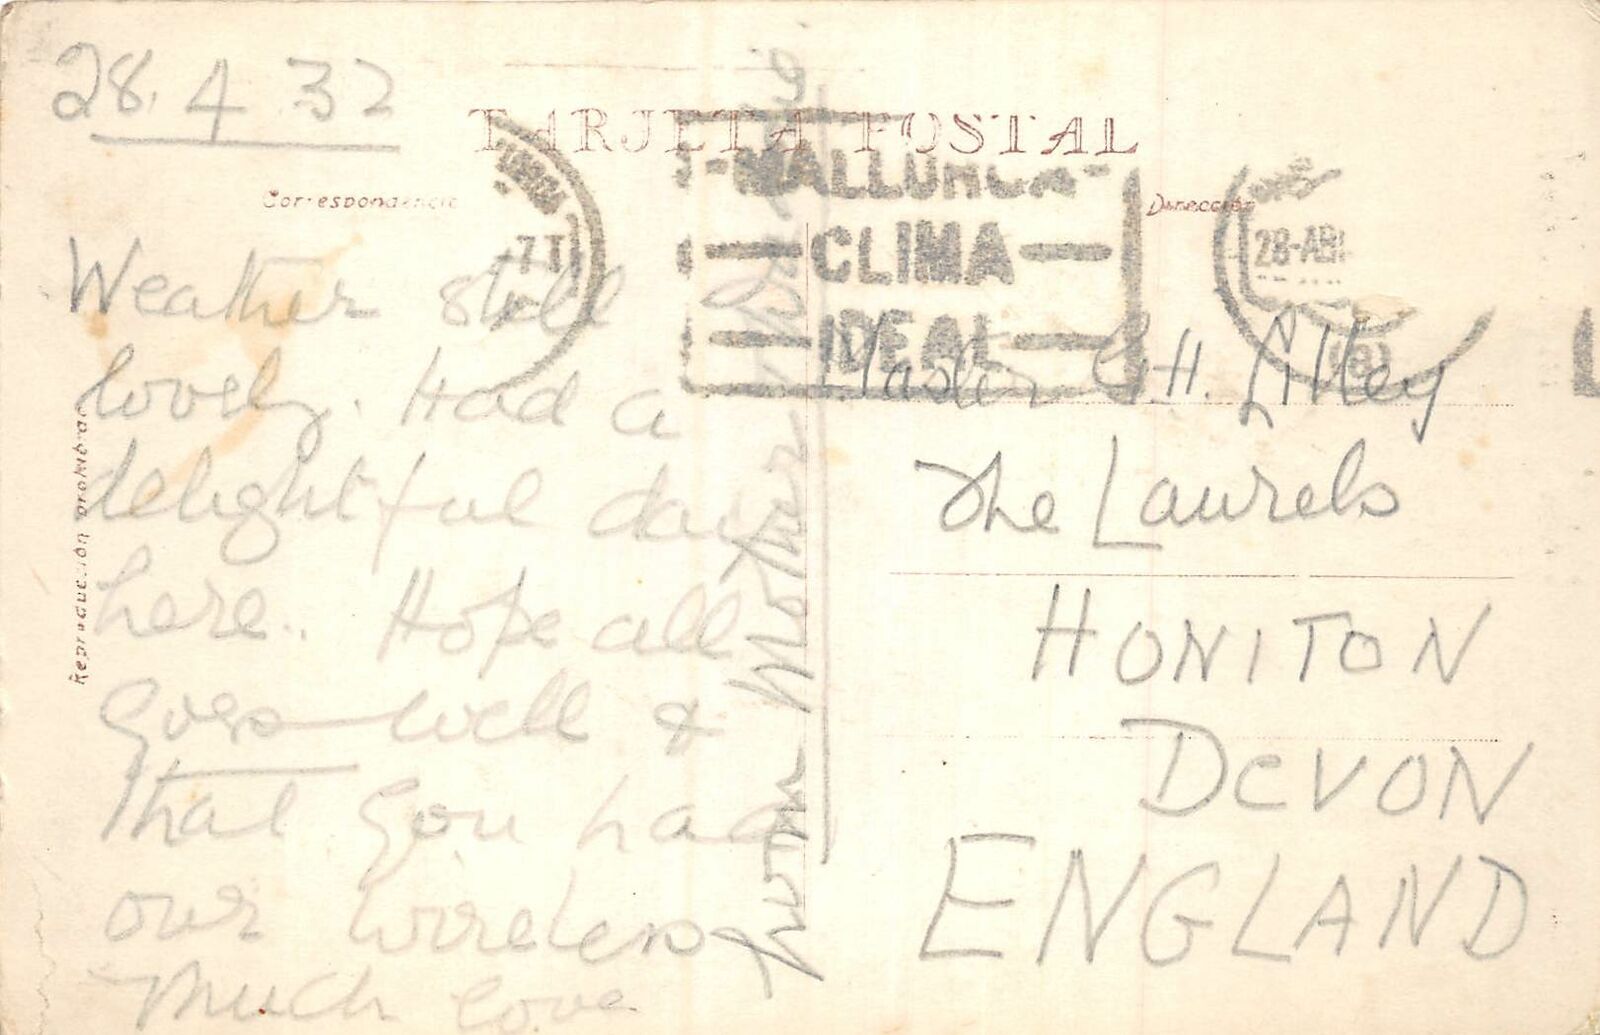 28. 4 32
TARJETA POSTAL
Correspondencia
Dirección
-MALLORCA-
CLIMA
IDEAL
28-ABR
Weather still
lovely. Had a
delightful day
here.. Hope all
goes well &
that you had
our wireless
Much love
from Mother
Reproducción prohibida
Master G.H. Lilley
The Laurels
HONITON
DEVON
ENGLAND